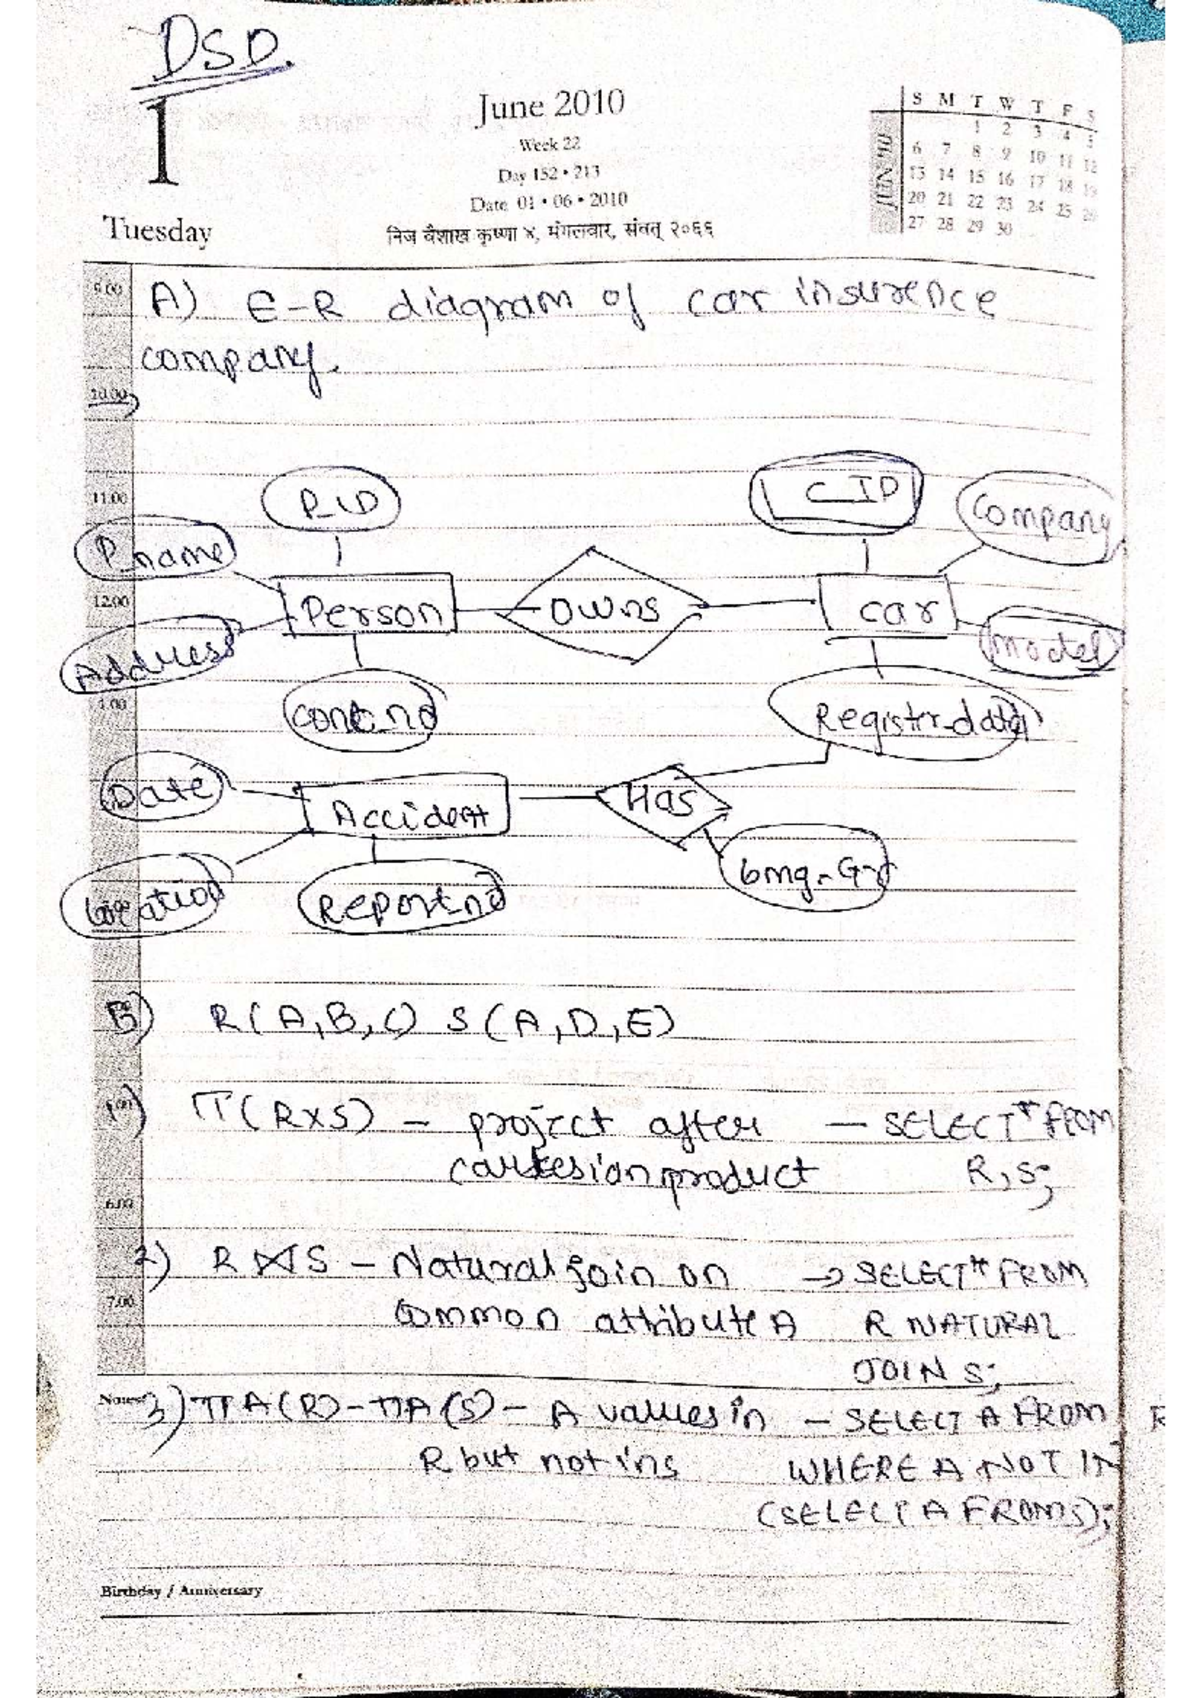 DSD.
1
Tuesday
June 2010
Week 22
Day 152 • 213
Date 01 • 06 • 2010
निज वैशाख कृष्णा ४, मंगलवार, संवत् २०६६
JUN-10
S M T W T F S
1 2 3 4 5
6 7 8 9 10 11 12
13 14 15 16 17 18 19
20 21 22 23 24 25 26
27 28 29 30
9.00
A) E-R diagram of car insurence
company.
10.00
11.00
P_ID
C_ID
Company
P_name
12.00
Person
Owns
car
Model
Address
1.00
Cont_no
Registr_date
Date
Accident
Has
Location
Report_no
B) R(A,B,C) S(A,D,E)
1) π(R×S) - project after — SELECT * FROM
cartesian product R,S;
6.00
2) R⋈S - Natural join on → SELECT * FROM
7.00
common attribute A R NATURAL
JOIN S;
Notes
3) πA(R)-πA(S) - A values in - SELECT A FROM R
R but not in s WHERE A NOT IN
(SELECT A FROM S);
Birthday / Anniversary